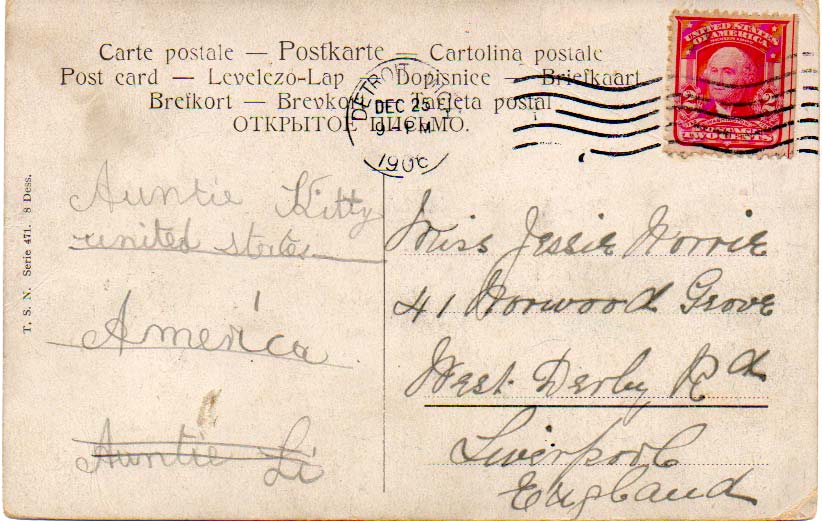 Carte postale — Postkarte — Cartolina postale
Post card — Levelező-Lap — Dopisnice — Briefkaart
Brefkort — Brevkort — Tarjeta postal
ОТКРЫТОЕ ПИСЬМО.
DETROIT
DEC 25
9 - PM
1906
UNITED STATES
OF AMERICA
2 2
TWO CENTS
T. S. N. Serie 471. 8 Dess.
Auntie Kitty
united states
America
Auntie Li
Miss Jessie Norrie
41 Norwood Grove
West Derby Rd
Liverpool
England